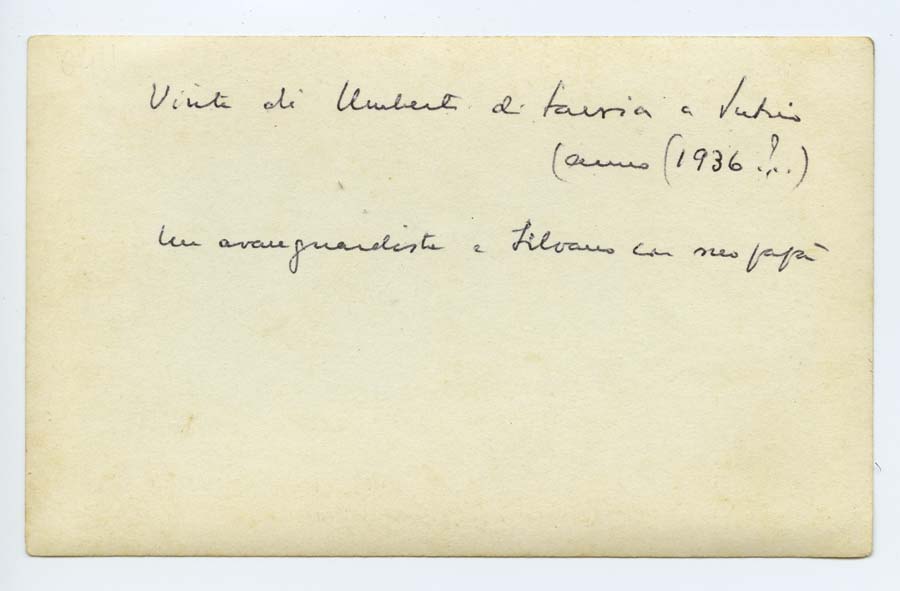 Visita di Umberto di Savoia a Sutrio
(anno (1936 ?..)
Un avanguardista e Silvano con suo papà